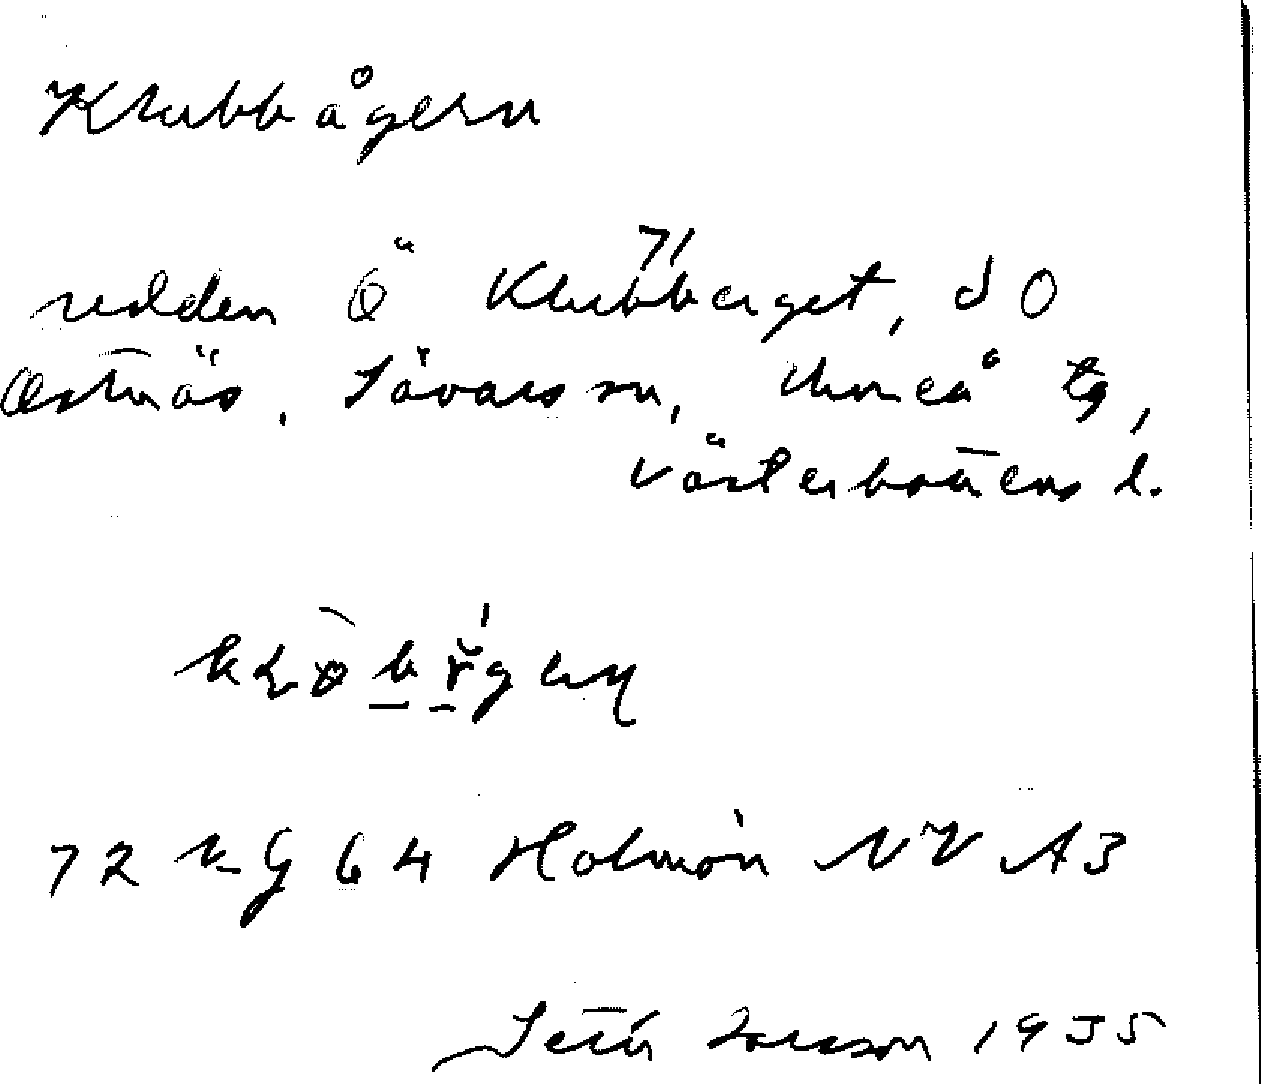 Klubbågern
udden Ö Klubberget, SO
71
Östnäs, Sävars sn, Umeå tg,
Västerbottens l.
72 k G 64 Holmön NV A3
Set Larsson 1935